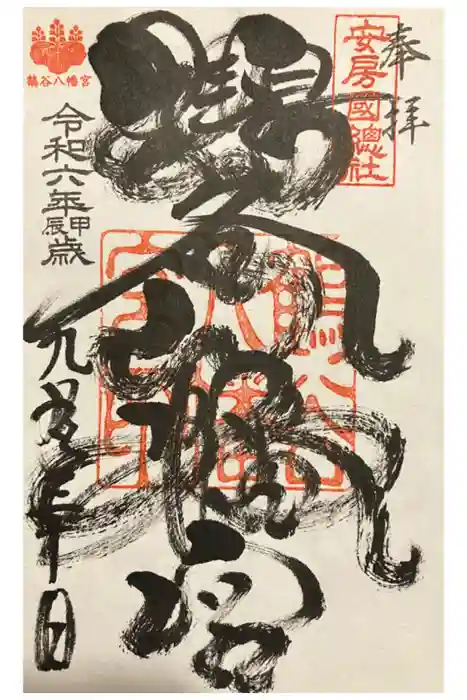 奉拝
安房國總社
鶴谷八幡宮
鶴谷
八幡
宮印
鶴谷八幡宮
令和六年甲辰歳
九月十日